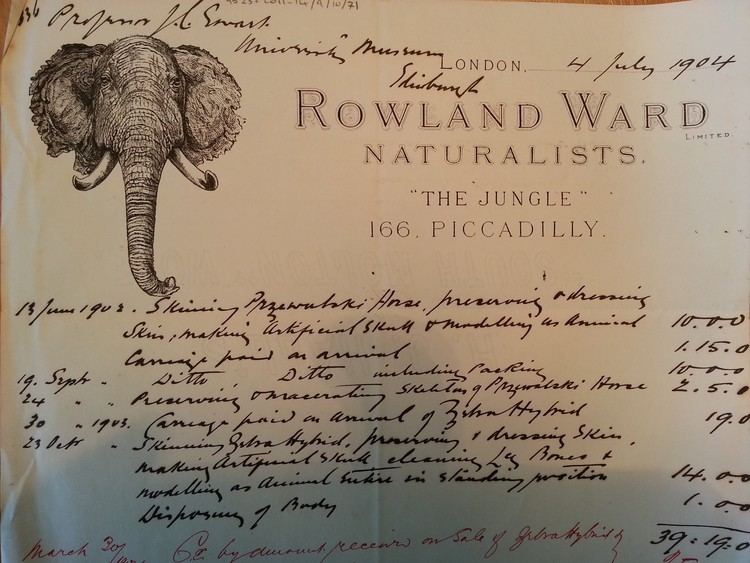 336 Professor J. C. Ewart
University Museum
Edinburgh
LONDON, 4 July 1904
ROWLAND WARD
LIMITED.
NATURALISTS.
"THE JUNGLE"
166, PICCADILLY.
13 June 1902. Skinning Przewalski Horse, preserving & dressing
Skin, making Artificial Skull & modelling as Animal 10.0.0
Carriage paid on arrival 1.15.0
19. Septr " Ditto Ditto including Packing 10.0.0
24 " " Preserving & macerating Skeleton of Przewalski Horse 2.5.0
30 " 1903. Carriage paid on Arrival of Zebra Hybrid 19.0
23 Octr " Skinning Zebra Hybrid, preserving & dressing Skin,
making Artificial Skull cleaning Leg Bones &
modelling as Animal Entire in Standing position 14.0.0
Disposing of Body 1.0.0
39=19.0
March 30/ Cr by amount received on Sale of Zebra Hybrid